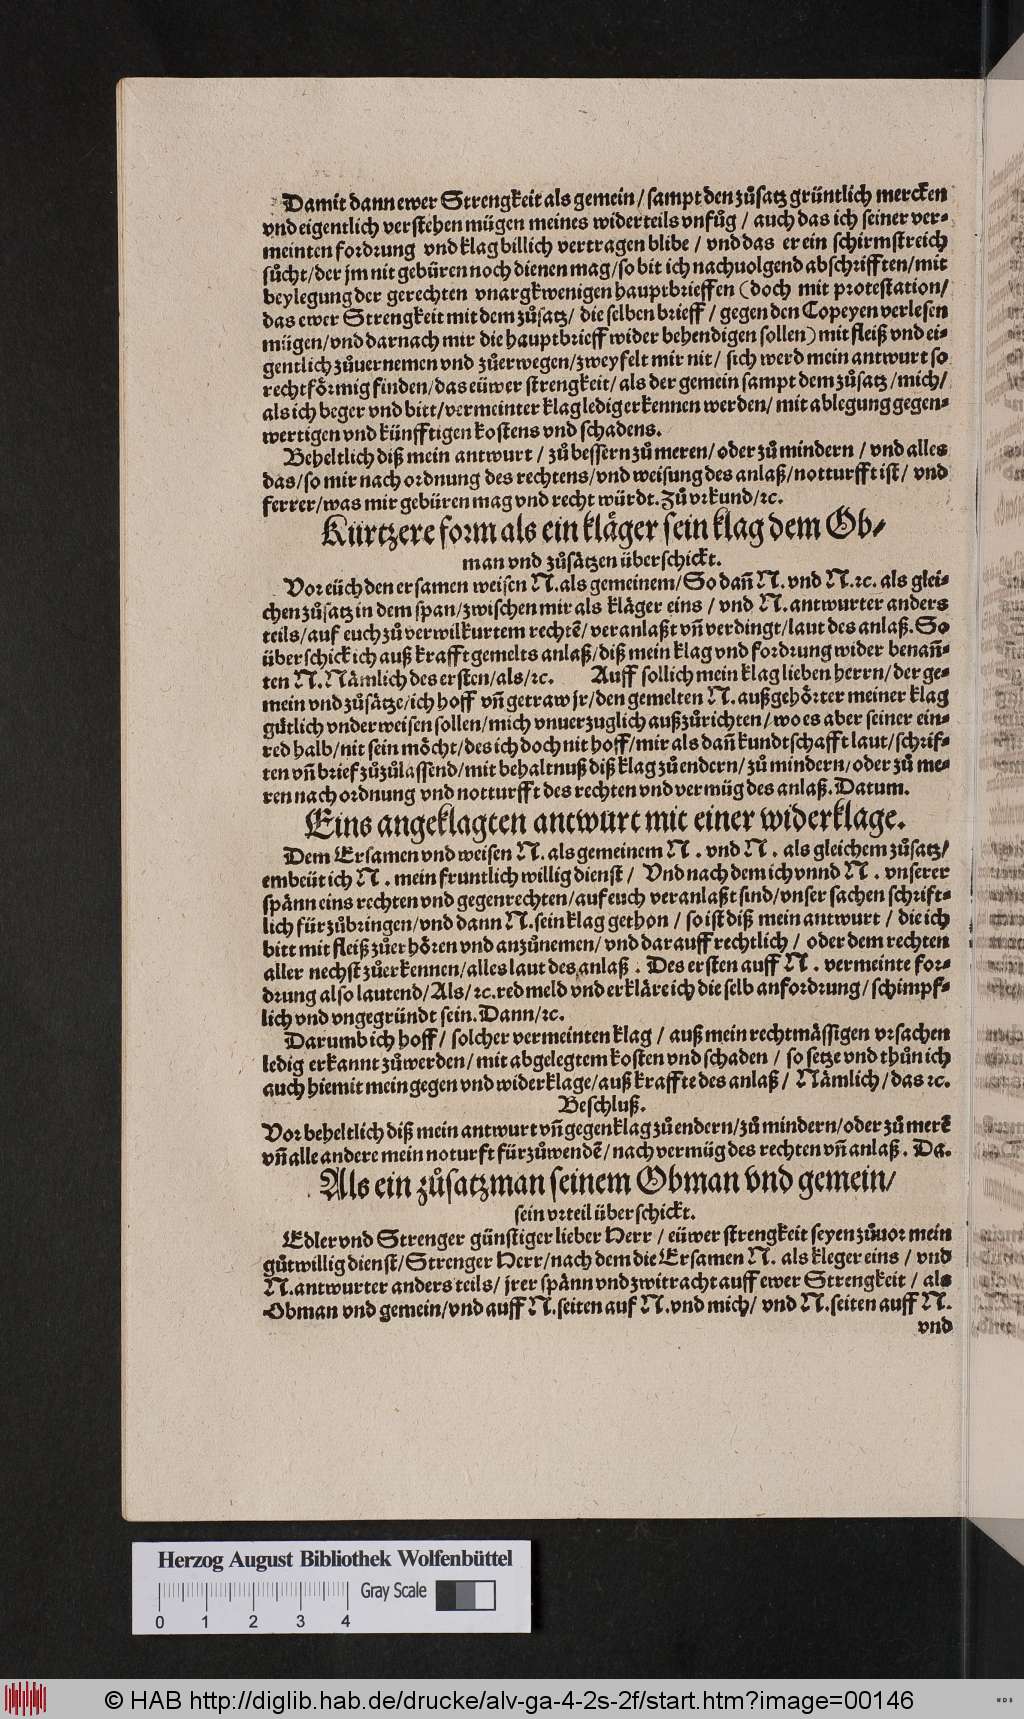 Damit dann ewer Strengkeit als gemein / sampt den zuͦsatz gruͤntlich mercken
vnd eigentlich verstehen muͤgen meines widerteils vnfuͦg / auch das ich seiner ver⸗
meinten fordrung vnd klag billich vertragen blibe / vnd das er ein schirmstreich
suͦcht / der jm nit gebüren noch dienen mag / so bit ich nachuolgend abschrifften / mit
beylegung der gerechten vnargkwenigen hauptbrieffen (doch mit protestation /
das ewer Strengkeit mit dem zuͦsatz / die selben brieff / gegen den Copeyen verlesen
mügen / vnd darnach mir die hauptbrieff wider behendigen sollen) mit fleiß vnd ei⸗
gentlich zuͦuernemen vnd zuͦerwegen / zweyfelt mir nit / sich werd mein antwurt so
rechtförmig finden / das eüwer strengkeit / als der gemein sampt dem zuͦsatz / mich /
als ich beger vnd bitt / vermeinter klag ledig erkennen werden / mit ablegung gegen⸗
wertigen vnd künfftigen kostens vnd schadens.
Beheltlich diß mein antwurt / zuͦ bessern zuͦ meren / oder zuͦ mindern / vnd alles
das / so mir nach ordnung des rechtens / vnd weisung des anlaß / notturfft ist / vnd
ferrer / was mir gebüren mag vnd recht würdt. Zuͦ vrkund / ꝛc.
Kürtzere form als ein kläger sein klag dem Ob⸗
man vnd zuͦsätzen überschickt.
Vor eüch den ersamen weisen N. als gemeinem / So dañ N. vnd N. ꝛc. als glei⸗
chen zuͦsatz in dem span / zwischen mir als kläger eins / vnd N. antwurter anders
teils / auf euch zuͦ verwilkurtem rechtẽ / veranlaßt vñ verdingt / laut des anlaß. So
überschick ich auß krafft gemelts anlaß / diß mein klag vnd fordrung wider benañ⸗
ten N. Nämlich des ersten / als / ꝛc. Auff sollich mein klag lieben herrn / der ge⸗
mein vnd zuͦsätze / ich hoff vñ getraw jr / den gemelten N. außgehörter meiner klag
gütlich vnderweisen sollen / mich vnuerzuglich außzuͦrichten / wo es aber seiner ein⸗
red halb / nit sein möcht / des ich doch nit hoff / mir als dañ kundtschafft laut / schrif⸗
ten vñ brief zuͦzuͦlassend / mit behaltnuß diß klag zuͦ endern / zuͦ mindern / oder zuͦ me⸗
ren nach ordnung vnd notturfft des rechten vnd vermüg des anlaß. Datum.
Eins angeklagten antwurt mit einer widerklage.
Dem Ersamen vnd weisen N. als gemeinem N. vnd N. als gleichem zuͦsatz /
embeüt ich N. mein fruntlich willig dienst / Vnd nach dem ich vnnd N. vnserer
spänn eins rechten vnd gegenrechten / auf euch veranlaßt sind / vnser sachen schrift⸗
lich fürzuͦbringen / vnd dann N. sein klag gethon / so ist diß mein antwurt / die ich
bitt mit fleiß zuͦerhören vnd anzuͦnemen / vnd darauff rechtlich / oder dem rechten
aller nechst zuͦerkennen / alles laut des anlaß. Des ersten auff N. vermeinte for⸗
drung also lautend / Als / ꝛc. red meld vnd erkläre ich die selb anfordrung / schimpf⸗
lich vnd vngegründt sein. Dann / ꝛc.
Darumb ich hoff / solcher vermeinten klag / auß mein rechtmässigen vrsachen
ledig erkannt zuͦwerden / mit abgelegtem kosten vnd schaden / so setze vnd thuͦn ich
auch hiemit mein gegen vnd widerklage / auß kraffte des anlaß / Nämlich / das ꝛc.
Beschluß.
Vorbeheltlich diß mein antwurt vñ gegenklag zuͦ endern / zuͦ mindern / oder zuͦ merẽ
vñ alle andere mein noturft fürzuͦwendẽ / nach vermüg des rechten vñ anlaß. Da.
Als ein zuͦsatzman seinem Obman vnd gemein /
sein vrteil überschickt.
Edler vnd Strenger günstiger lieber Herr / eüwer strengkeit seyen zuͦuor mein
guͦtwillig dienst / Strenger Herr / nach dem die Ersamen N. als kleger eins / vnd
N. antwurter anders teils / jrer spänn vnd zwitracht auff ewer Strengkeit / als
Obman vnd gemein / vnd auff N. seiten auf N. vnd mich / vnd N. seiten auff N.
vnd
Herzog August Bibliothek Wolfenbüttel
Gray Scale
0 1 2 3 4
© HAB http://diglib.hab.de/drucke/alv-ga-4-2s-2f/start.htm?image=00146
WDB